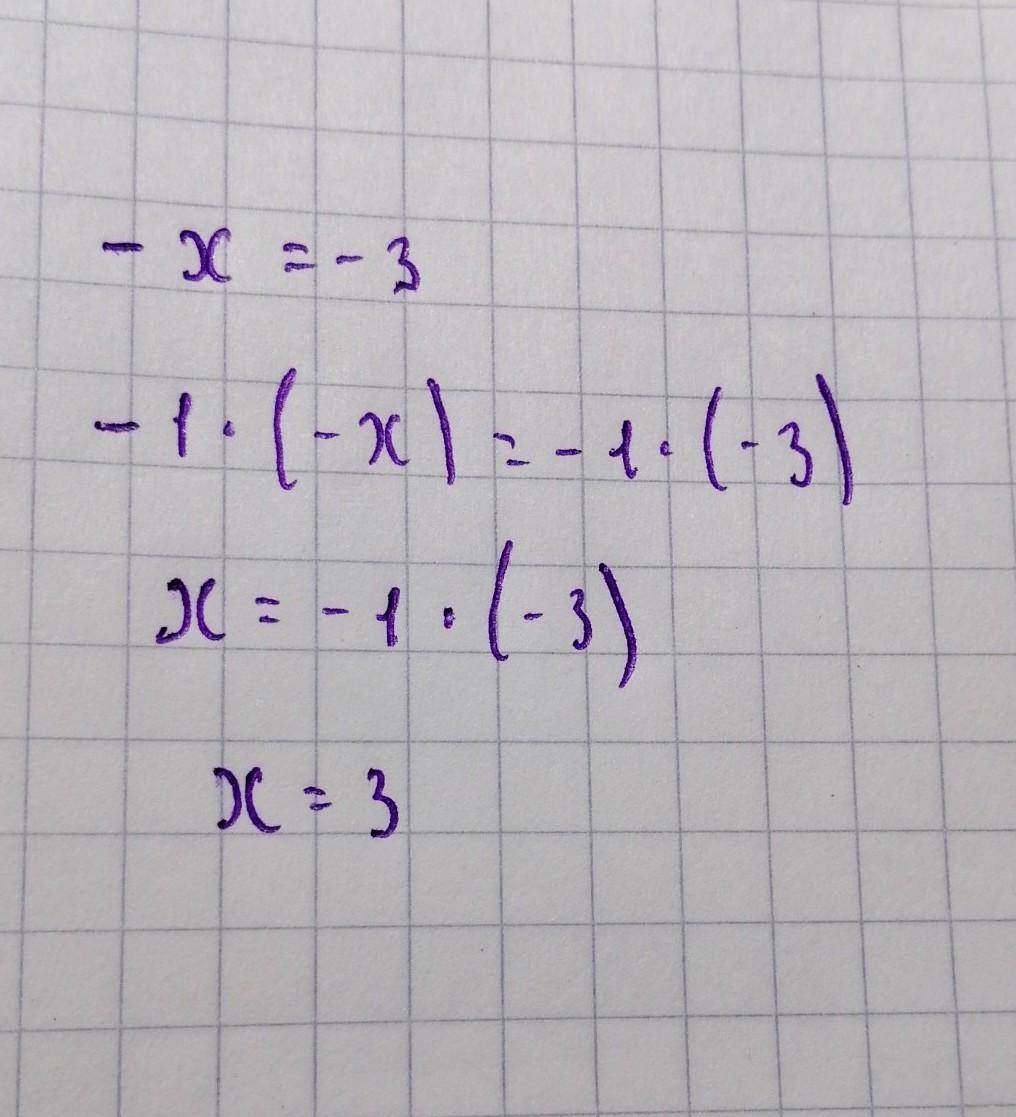 - x = - 3
- 1 · (- x) = - 1 · (- 3)
x = - 1 · (- 3)
x = 3